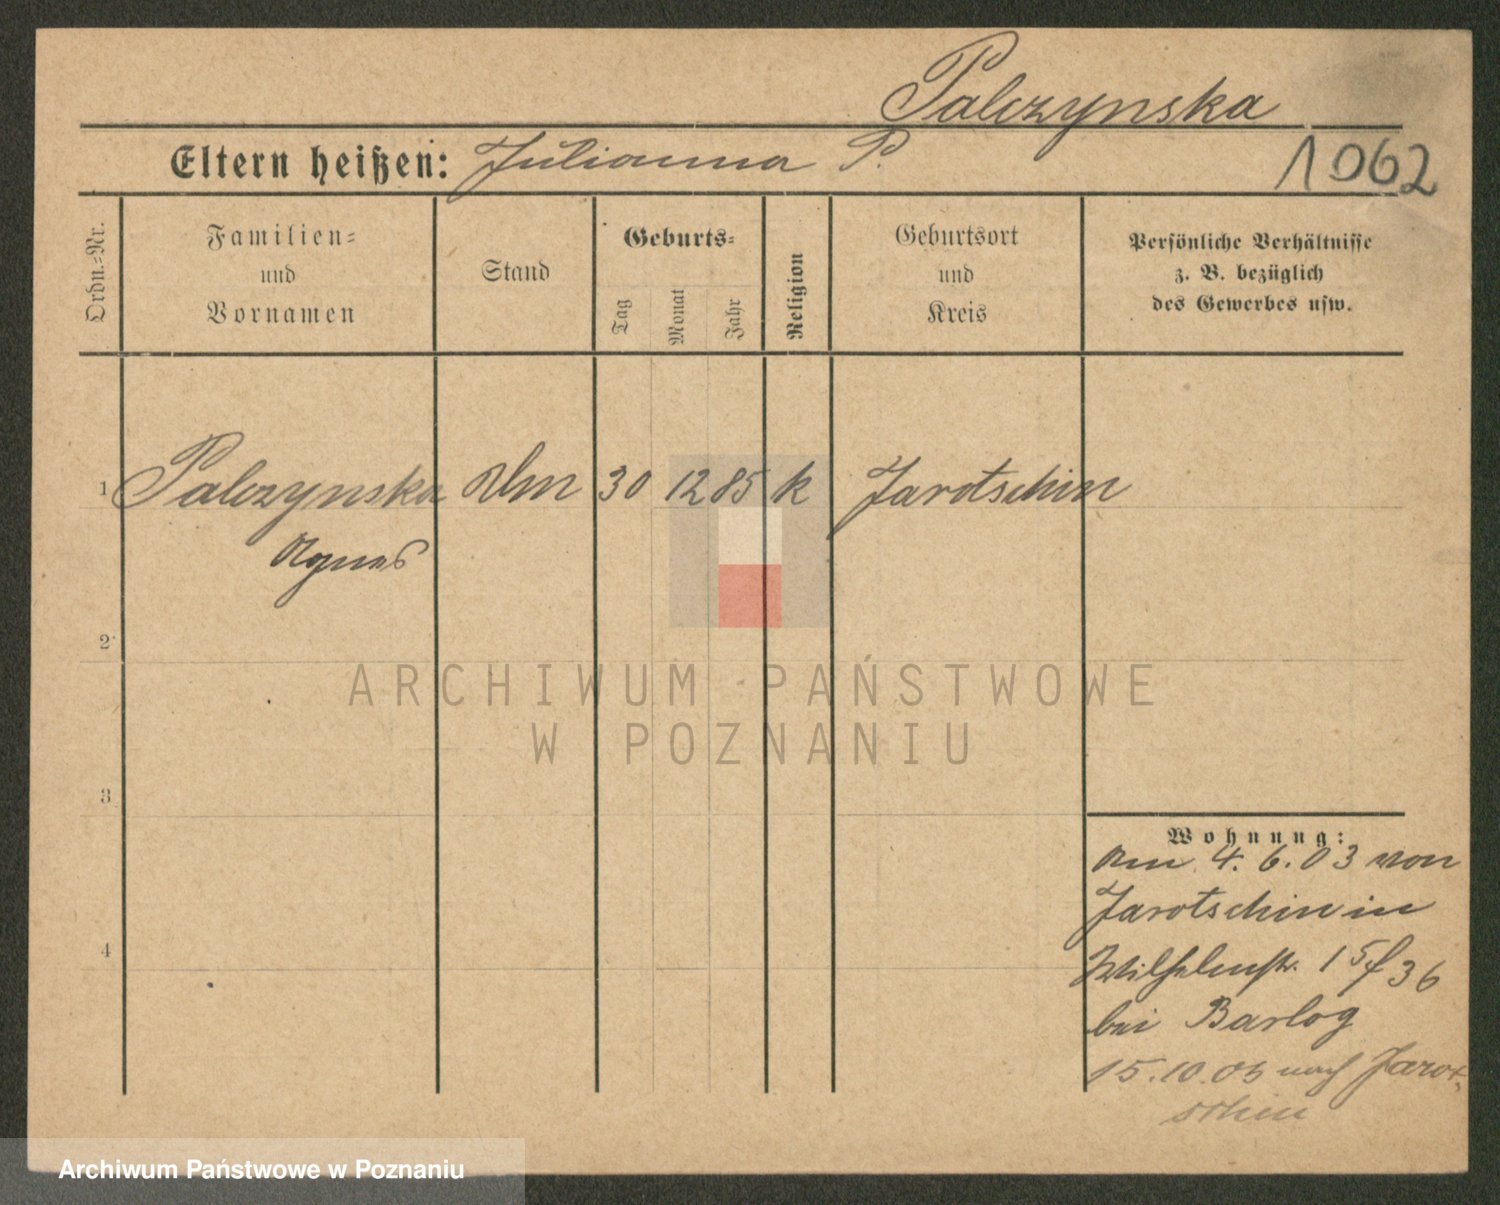 Palczynska
Eltern heißen: Julianna P.
1062
Ordn.-Nr.
Familien-
und
Vornamen
Stand
Geburts-
Tag
Monat
Jahr
Religion
Geburtsort
und
Kreis
Persönliche Verhältnisse
z. B. bezüglich
des Gewerbes usw.
1 Palczynska 30 12 85 k Jarotschin
Agnes
2
3
4
ARCHIWUM PAŃSTWOWE
W POZNANIU
Wohnung:
Am 4. 6. 03 von
Jarotschin in
Wilhelmstr. 15/36
bei Barlog
15.10.03 nach Jarot-
schin
Archiwum Państwowe w Poznaniu